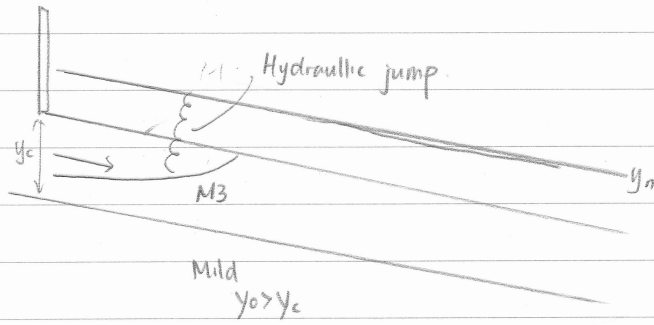 Hydraullic jump
yc
yn
M3
Mild
yo>yc